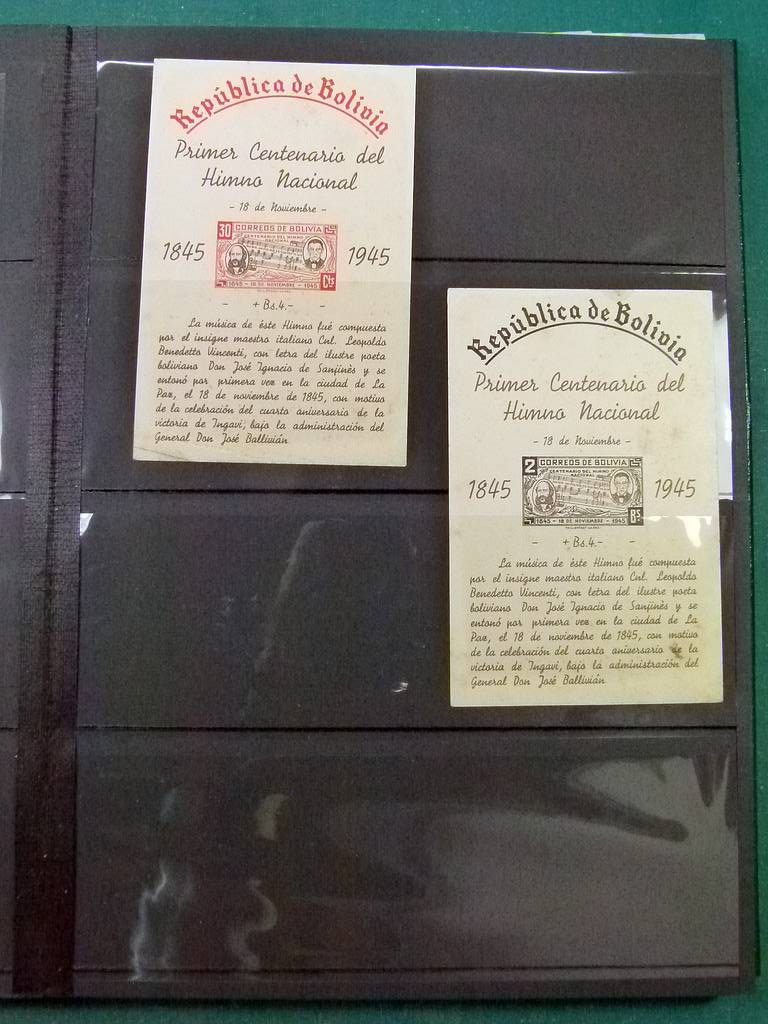 República de Bolivia
Primer Centenario del
Himno Nacional
- 18 de Noviembre -
30
CORREOS DE BOLIVIA
CENTENARIO DEL HIMNO
NACIONAL
1845
1945
1845 - 18 DE NOVIEMBRE - 1945
Cts
- + Bs.4.- -
La música de éste Himno fué compuesta
por el insigne maestro italiano Cnl. Leopoldo
Benedetto Vincenti, con letra del ilustre poeta
boliviano Don José Ignacio de Sanjinès y se
entonó por primera vez en la ciudad de La
Paz, el 18 de noviembre de 1845, con motivo
de la celebración del cuarto aniversario de la
victoria de Ingavi, bajo la administración del
General Don José Ballivián
República de Bolivia
Primer Centenario del
Himno Nacional
- 18 de Noviembre -
2
CORREOS DE BOLIVIA
CENTENARIO DEL HIMNO
NACIONAL
1845
1945
1845 - 18 DE NOVIEMBRE - 1945
Bs.
- + Bs.4.- -
La música de éste Himno fué compuesta
por el insigne maestro italiano Cnl. Leopoldo
Benedetto Vincenti, con letra del ilustre poeta
boliviano Don José Ignacio de Sanjinès y se
entonó por primera vez en la ciudad de La
Paz, el 18 de noviembre de 1845, con motivo
de la celebración del cuarto aniversario de la
victoria de Ingavi, bajo la administración del
General Don José Ballivián